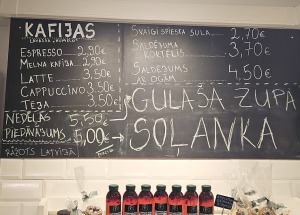 KAFIJAS
ESPRESSO 2,90€
MELNA KAFIJA 2,90€
LATTE 3,50€
CAPPUCCINO 3,50€
TEJA 3,50€
NEDĒĻAS PIEDĀVĀJUMS 5,50€
5,00€
RAŽOTS LATVIJĀ
SVAIGI SPIESTA SULA 2,70€
SALDĒJUMA KOKTEILIS 3,70€
SALDĒJUMS AR OGĀM 4,50€
GULAŠA ZUPA
SOĻANKA